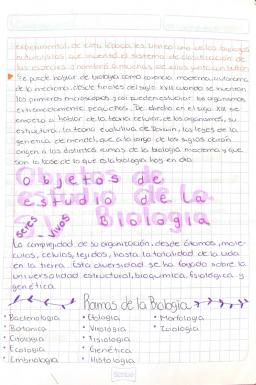 experimental, de esta época es Linneo uno de los biólogos
naturalistas que inventó el sistema de clasificación de
las especies y nombró a muchas de ellas junto con
Se puede hablar de biología como ciencia moderna, autónoma
de la medicina, desde finales del siglo XVII cuando se inventan
los primeros microscopios y así pueden estudiar los organismos
extremadamente pequeños. De ahí en el siglo XIX se
empezó a hablar de la teoría celular, de los organismos, su
estructura, la teoría evolutiva de Darwin, las leyes de la
genética de Mendel, que a lo largo de los siglos darán
origen a las distintas ramas de la biología moderna y que
son la base de lo que es la biología hoy en día.
Objetos de
estudio de la
Biología
Seres vivos
La complejidad de su organización, desde átomos, molé-
culas, células, tejidos, hasta la totalidad de la vida
en la tierra. Esta diversidad se ha forjado sobre la
universalidad estructural, bioquímica, fisiológica y
genética.
Ramas de la Biología
• Bacteriología • Etología • Morfología
• Botánica • Virología • Zoología
• Citología • Fisiología
• Ecología • Genética
• Embriología • Histología
Scribe